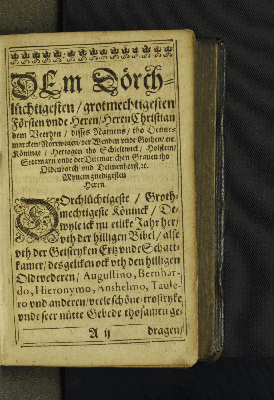 DEm Dörch-
lüchtigesten / grotmechtigesten
Försten vnde Heren / Heren Christian
dem Veerden / disses Namens / tho Denne-
marcken / Norrwegen / der Wenden vnde Gothen / etc.
Köninge / Hertogen tho Schleßwick / Holsten /
Stormarn vnde der Ditmarschen Grauen tho
Oldenborch vnd Delmenhorst / etc.
Mynem gnedigesten
Heren.
DOrchlüchtigeste / Groth-
mechtigeste Köninck / De-
wyle ick nu etlike Jahr her /
vth der hilligen Bibel / alse
vth der Geistryken Ertz vnde Schatt-
kamer / desgeliken ock vth den hilligen
Oldtvederen / Augustino, Bernhar-
do, Hieronymo, Anshelmo, Taule-
ro vnd anderen / veele schöne / trostryke
vnde seer nütte Gebede thosamen ge-
A ij
dragen /